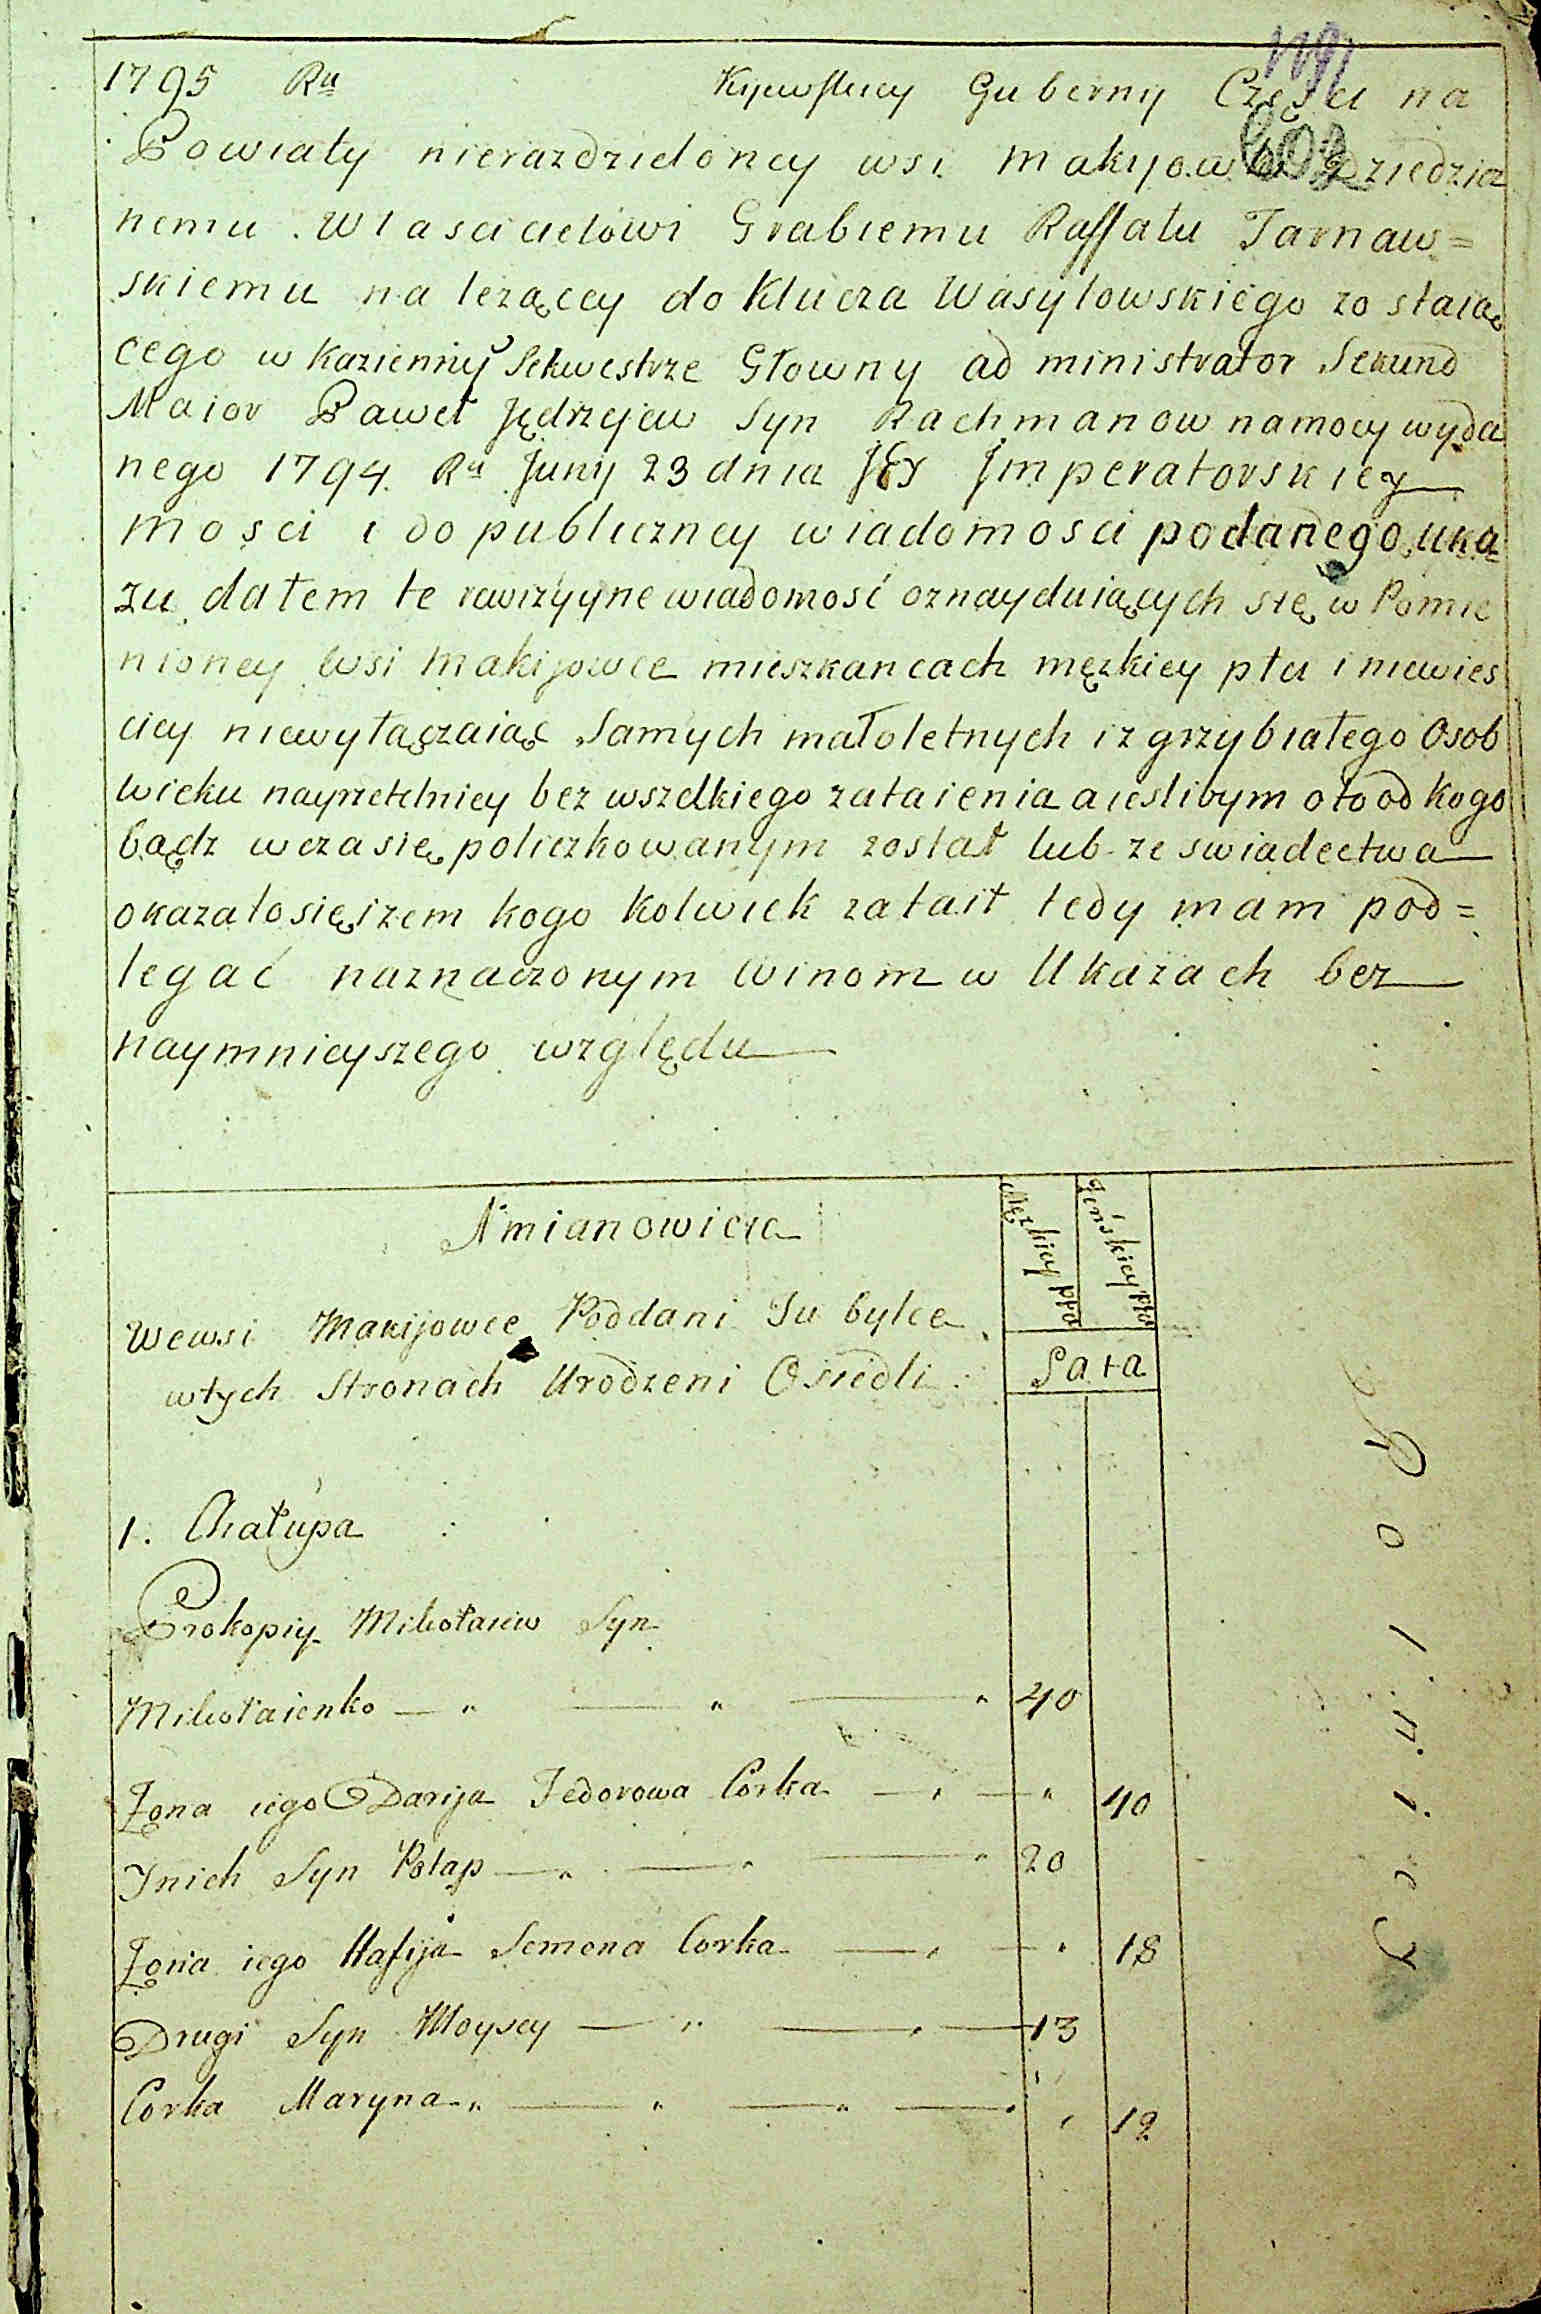 1795 Ru Kyjewskiey Guberny Częsci na
Powiaty nierazdzieloney wsi Makijowki Dziedzia
nemu Wlascicielowi Grabiemu Raffału Tarnaw=
skiemu na leżącey do Klucza Wasylowskiego zo staią
cego w Kazienny Sekwestrze Głowny ad ministrator Sekund
Maior Paweł Jędrzejew Syn Rachmanow namocy wyda
nego 1794 Ru Juny 23 dnia Imperatorskiey
mosci i do publiczney wiadomosci podanego uka
zu dałem te rewizyyne wiadomość oznayduiących się w Pomie
nioney wsi Makijowce mieszkancach męzkiey płci i niewies
ciey niewyłączaiąc Samych małoletnych i zgrzybiałego Osob
wieku nayrzetelniey bez wszelkiego zataienia a ieslibym oto od kogo
bądz wczasie policzkowanym został lub ze swiadectwa
okazało się iżem kogo kolwiek zataił tedy mam pod=
legać naznaczonym winom w Ukazach bez
naymnieyszego względu
A mianowicie
Męzkiey płci
Żeńskiey płci
Wewsi Makijowce Poddani Tu bylce
wtych Stronach Urodzeni Osiedli
Lata
1. Chałupa
Prokopiy Mikołaiew Syn
Mikołaienko 40
Żona iego Darija Fedorowa Corka 40
Jnich Syn Potap 20
Żona iego Hafija Semena Corka 18
Drugi Syn Moysey 13
Corka Maryna 12